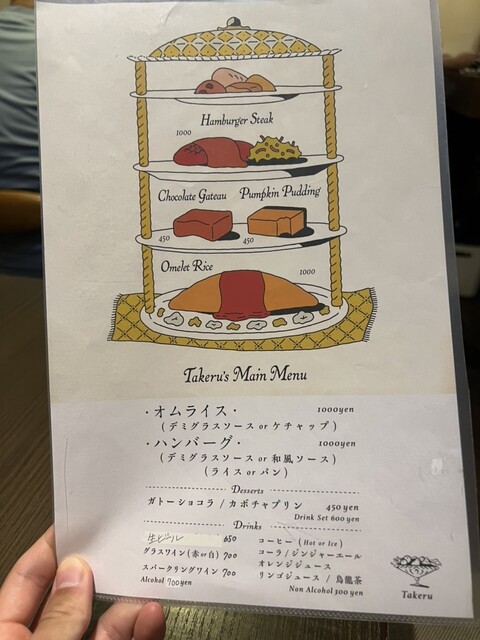 Hamburger Steak
1000
Chocolate Gateau
Pumpkin Pudding
450
450
Omelet Rice
1000
Takeru's Main Menu
・オムライス・ 1000yen
(デミグラスソース or ケチャップ)
・ハンバーグ・ 1000yen
(デミグラスソース or 和風ソース)
(ライス or パン)
Desserts
ガトーショコラ / カボチャプリン 450yen
Drink Set 600yen
Drinks
生ビール 650
グラスワイン(赤or白) 700
スパークリングワイン 700
Alcohol 700yen
コーヒー (Hot or Ice)
コーラ/ジンジャーエール
オレンジジュース
リンゴジュース / 烏龍茶
Non Alcohol 300yen
Takeru